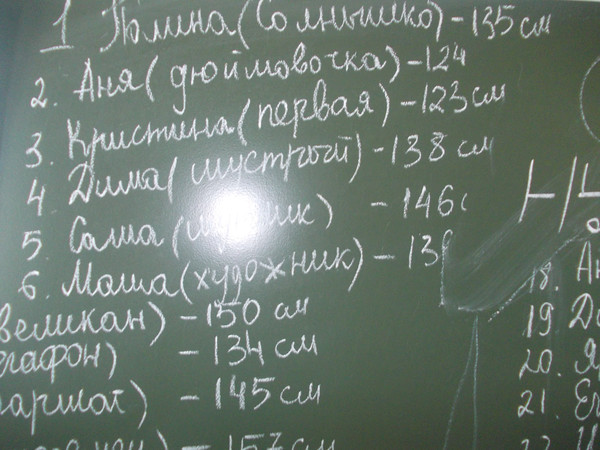 1 Полина (Солнышко) - 135 см
2. Аня (дюймовочка) - 124
3. Кристина (первая) - 123 см
4 Дима (шустрый) - 138 см
5. Саша - 146
6. Маша (художник) - 13
великан) - 150 см
гафон) - 134 см
аршал) - 145 см
18. Ан
19 Ди
20.
21. Ег